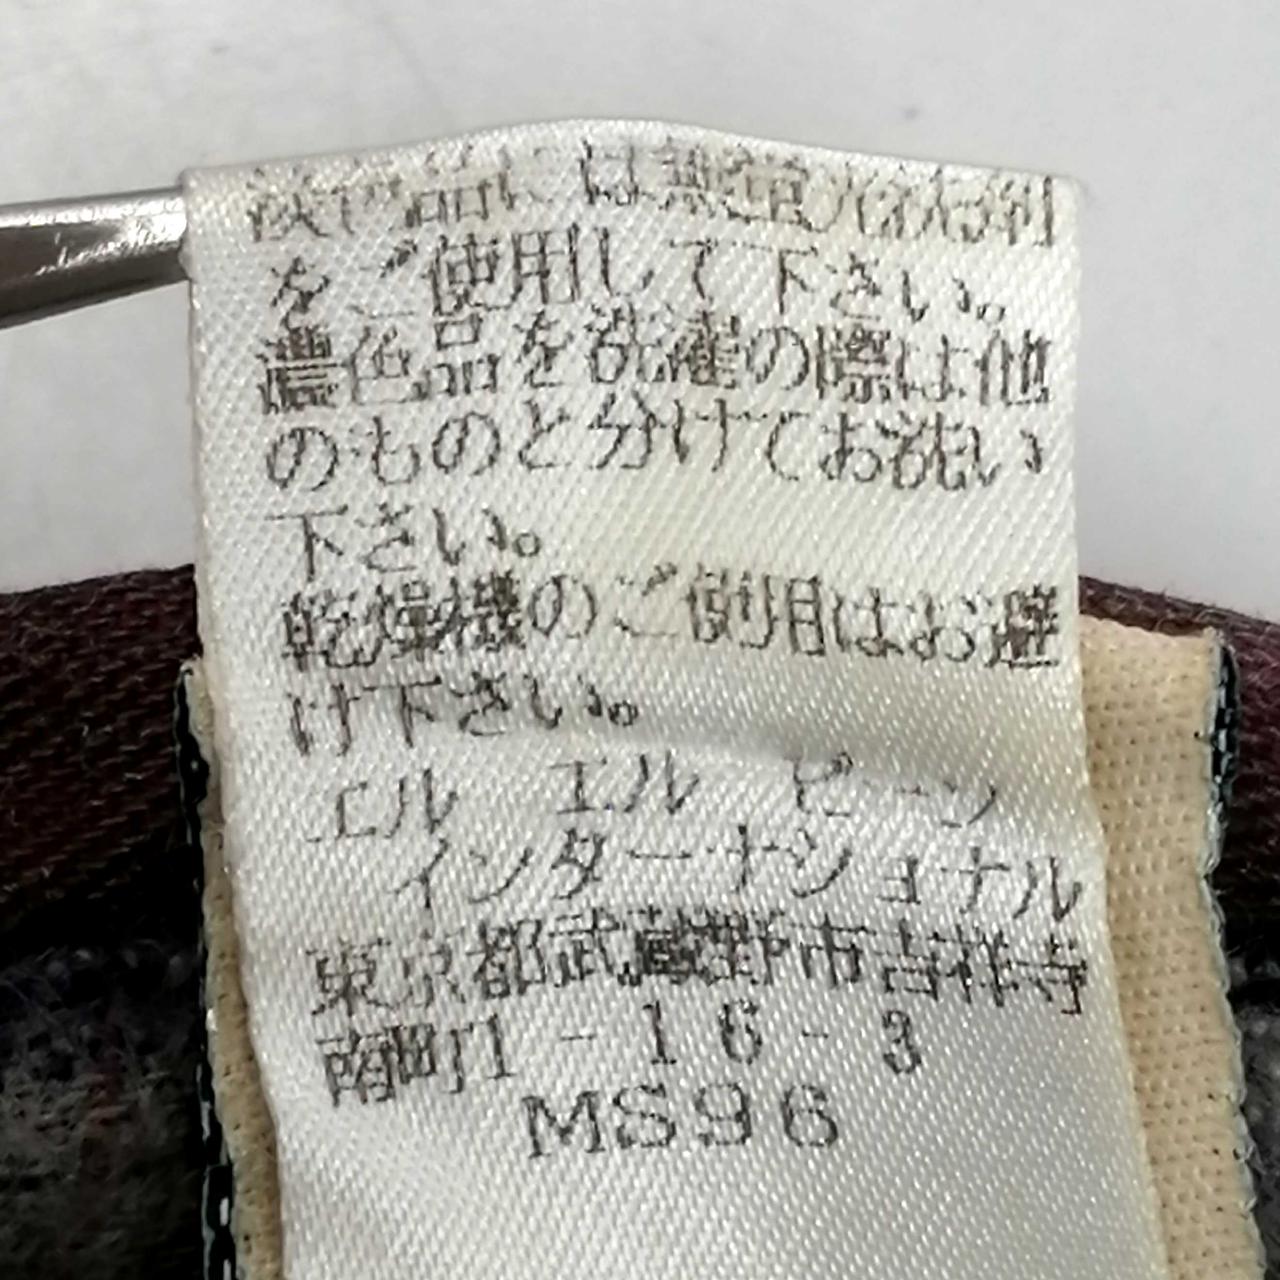 淡色品には無蛍光洗剤
をご使用して下さい。
濃色品を洗濯の際は他
のものと分けてお洗い
下さい。
乾燥機のご使用はお避
け下さい。
エル エル ビーン
インターナショナル
東京都武蔵野市吉祥寺
南町1-16-3
MS96